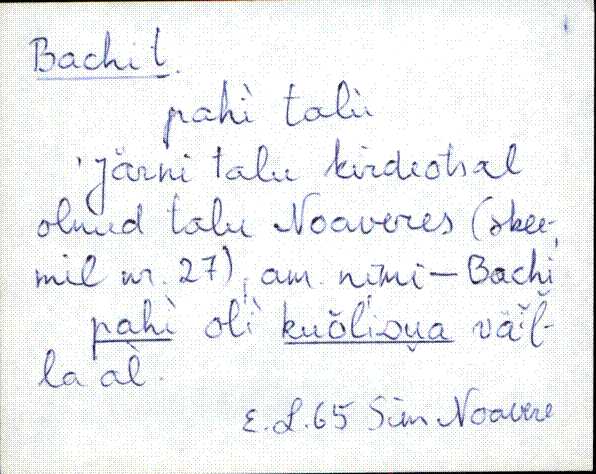 Bachi t.
pahì talù
Järni talu kirdeotsal
olnud talu Noaveres (skee-
mil nr. 27), am. nimi — Bachi,
pahì olì
la al̀.
E. L. 65 Sim Noavere